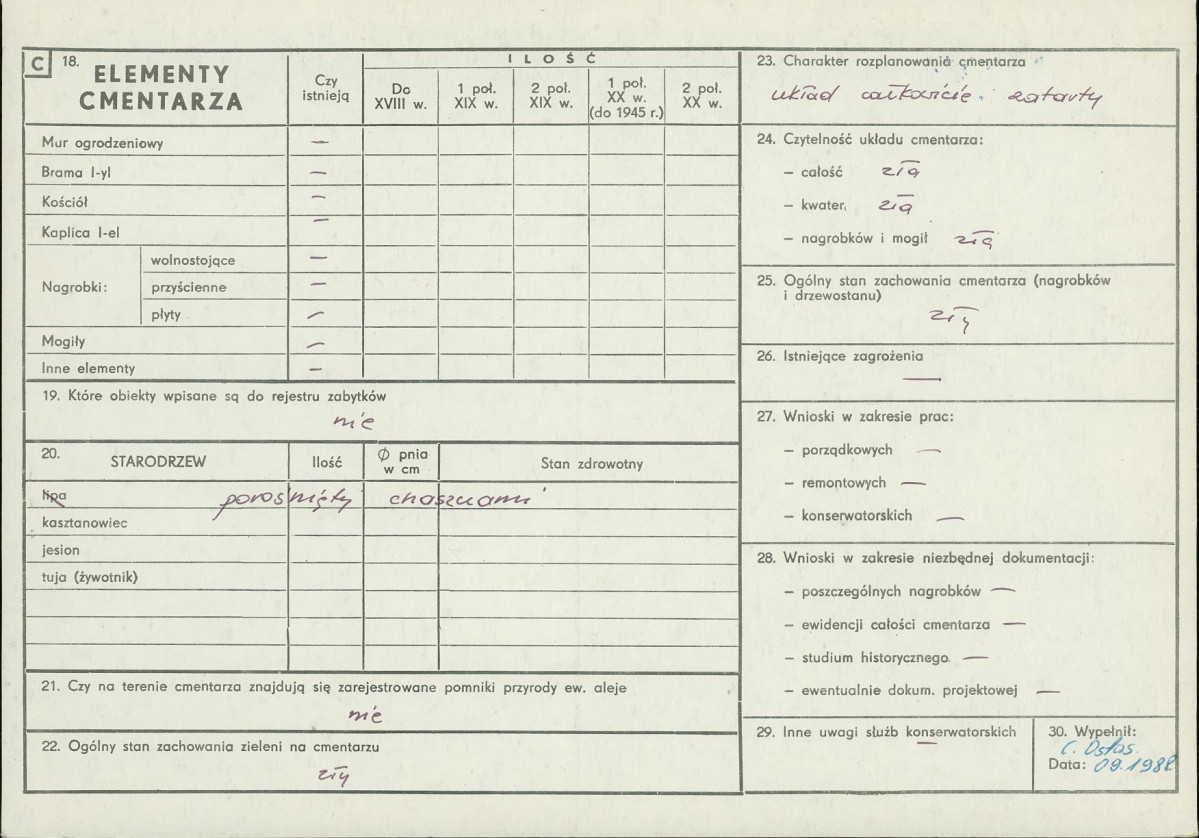 C 18. ELEMENTY CMENTARZA
Czy istnieją
ILOŚĆ
Do XVIII w.
1 poł. XIX w.
2 poł. XIX w.
1 poł. XX w. (do 1945 r.)
2 poł. XX w.
Mur ogrodzeniowy —
Brama I-yl —
Kościół —
Kaplica I-el —
Nagrobki:
wolnostojące —
przyścienne —
płyty —
Mogiły —
Inne elementy —
19. Które obiekty wpisane są do rejestru zabytków
nie
20. STARODRZEW
Ilość
Ø pnia w cm
Stan zdrowotny
lipa porośnięty chaszczami
kasztanowiec
jesion
tuja (żywotnik)
21. Czy na terenie cmentarza znajdują się zarejestrowane pomniki przyrody ew. aleje
nie
22. Ogólny stan zachowania zieleni na cmentarzu
zły
23. Charakter rozplanowania cmentarza
układ całkowicie zatarty
24. Czytelność układu cmentarza:
— całość zła
— kwater, zła
— nagrobków i mogił zła
25. Ogólny stan zachowania cmentarza (nagrobków
i drzewostanu)
zły
26. Istniejące zagrożenia
—
27. Wnioski w zakresie prac:
— porządkowych —
— remontowych —
— konserwatorskich —
28. Wnioski w zakresie niezbędnej dokumentacji:
— poszczególnych nagrobków —
— ewidencji całości cmentarza —
— studium historycznego —
— ewentualnie dokum. projektowej —
29. Inne uwagi służb konserwatorskich
—
30. Wypełnił:
C. Ostas.
Data: 09.1988